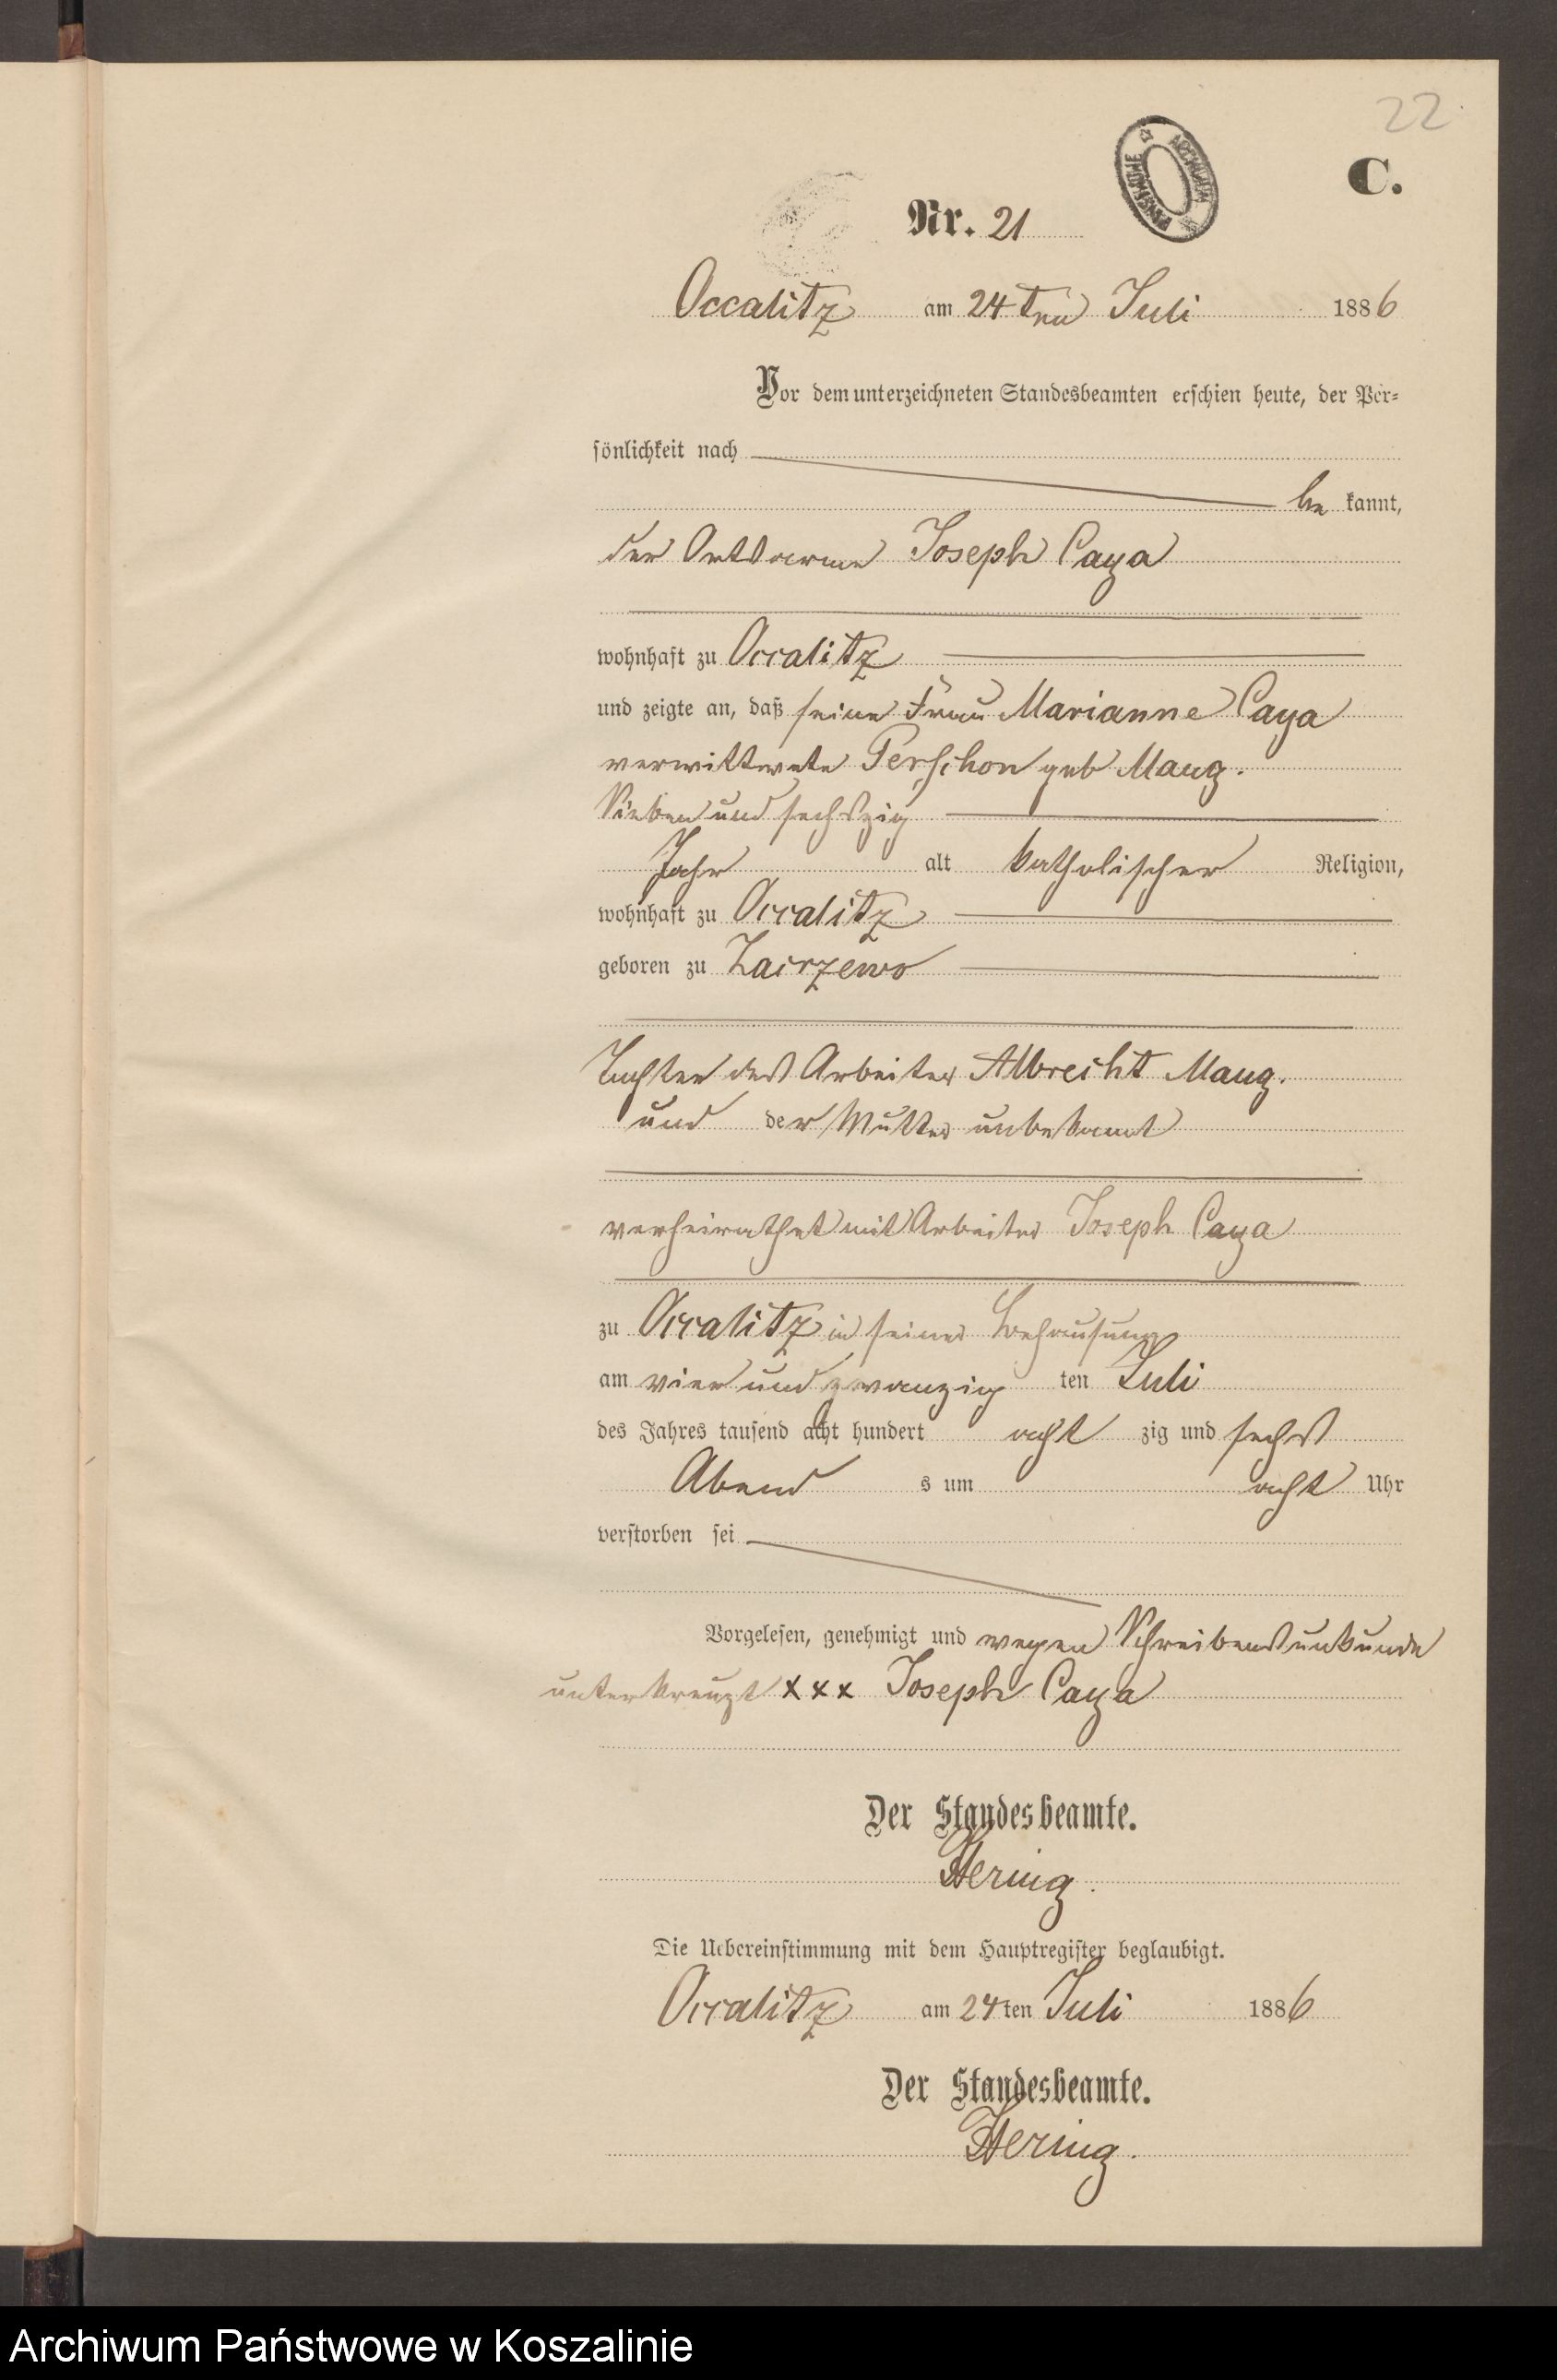 22
C.
Nr. 21
Occalitz am 24ten Juli 1886
Vor dem unterzeichneten Standesbeamten erschien heute, der Per-
sönlichkeit nach
be kannt,
der Ortsarme Joseph Caya
wohnhaft zu Occalitz
und zeigte an, daß seine Frau Marianne Caya
verwittwete Perschon geb Maug.
Sieben und sechszig
Jahr alt katholischer Religion,
wohnhaft zu Occalitz
geboren zu Zacrzewo
Tochter des Arbeiter Albrecht Maug.
und der Mutter unbekannt
verheirathet mit Arbeiter Joseph Caya
zu Occalitz in seiner Behausung
am vier und zwanzig ten Juli
des Jahres tausend acht hundert acht zig und sechs
Abend s um acht Uhr
verstorben sei
Vorgelesen, genehmigt und wegen Schreibensunkunde
unterkreuzt xxx Joseph Caya
Der Standesbeamte.
Hering.
Die Uebereinstimmung mit dem Hauptregister beglaubigt.
Occalitz am 24ten Juli 1886
Der Standesbeamte.
Hering.
Archiwum Państwowe w Koszalinie